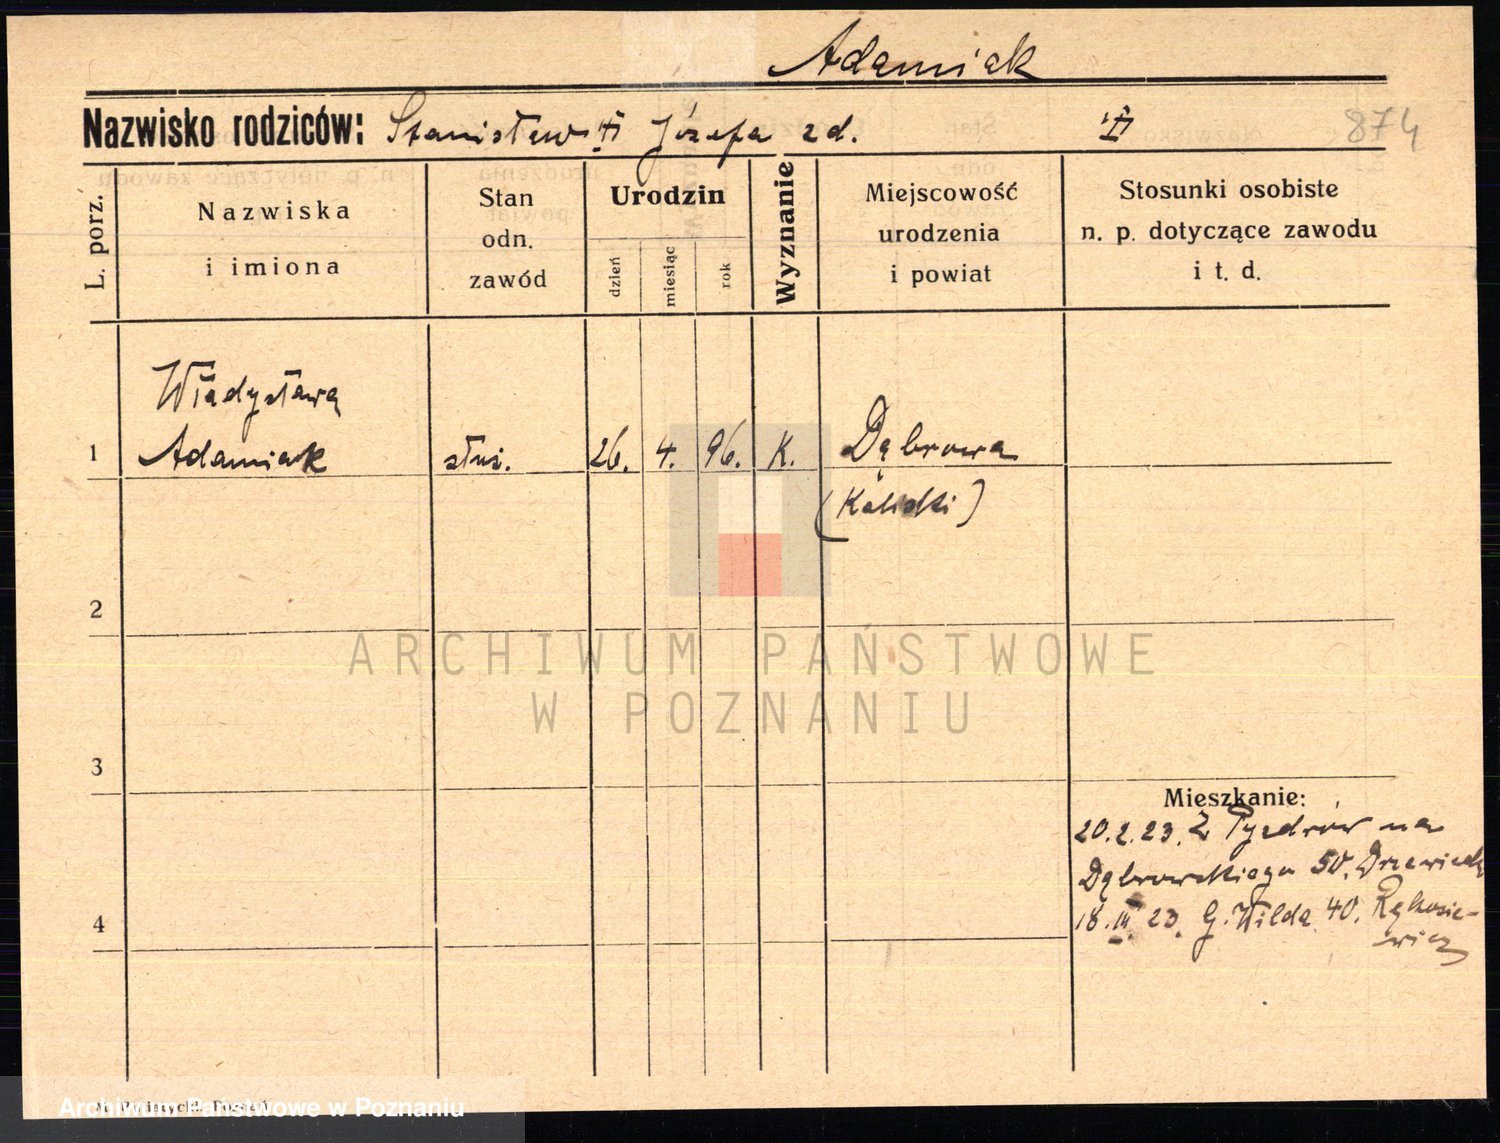 Adamiak
Nazwisko rodziców: Stanisław Józefa z d. 874
L. porz.
Nazwiska
i imiona
Stan
odn.
zawód
Urodzin
dzień
miesiąc
rok
Wyznanie
Miejscowość
urodzenia
i powiat
Stosunki osobiste
n. p. dotyczące zawodu
i t. d.
Władysława
1 Adamiak służ. 26. 4. 96. K. Dąbrowa
(Kaliski)
2
ARCHIWUM PAŃSTWOWE
W POZNANIU
3
Mieszkanie:
20.2.23. Z Pyzdrów na
Dąbrowskiego 50.
4 18.III.23. G. Wilda 40.
Archiwum Państwowe w Poznaniu